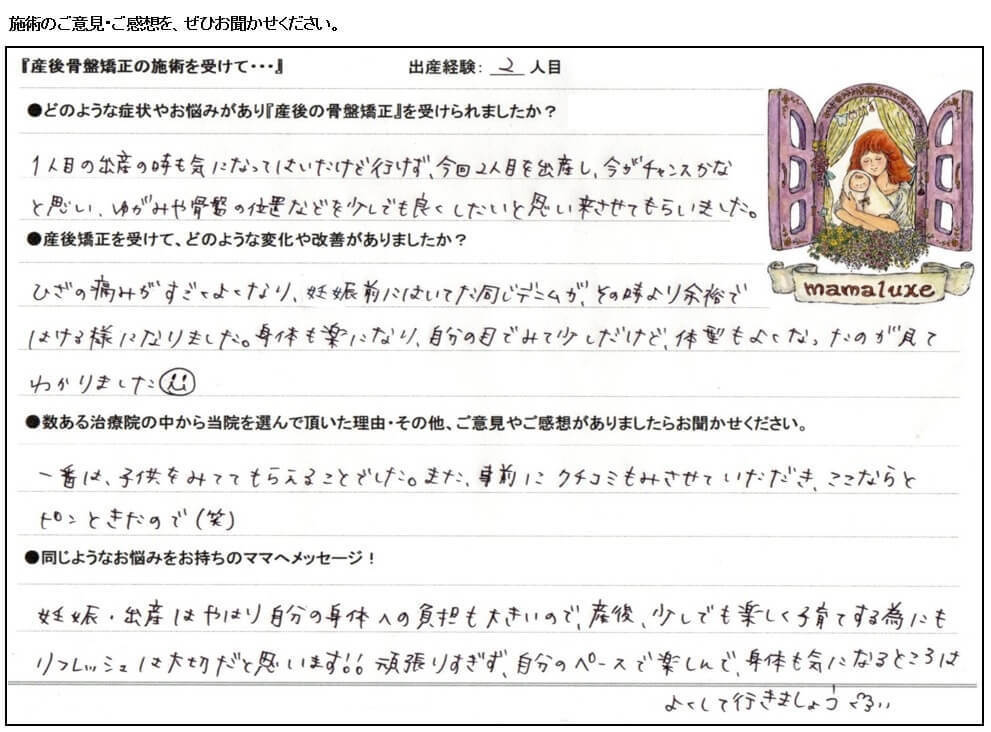 施術のご意見・ご感想を、ぜひお聞かせください。
『産後骨盤矯正の施術を受けて・・・』 出産経験: 2 人目
●どのような症状やお悩みがあり『産後の骨盤矯正』を受けられましたか？
1人目の出産の時も気になってはいたけど行けず、今回2人目を出産し、今がチャンスかな
と思い、ゆがみや骨盤の位置などを少しでも良くしたいと思い来させてもらいました。
●産後矯正を受けて、どのような変化や改善がありましたか？
ひざの痛みがすごくよくなり、妊娠前にはいてた同じデニムが、その時より余裕で
はける様になりました。身体も楽になり、自分の目でみて少しだけど、体型もよくなったのが見て
わかりました
mamaluxe
●数ある治療院の中から当院を選んで頂いた理由・その他、ご意見やご感想がありましたらお聞かせください。
一番は、子供をみててもらえることでした。また、事前にクチコミもみさせていただき、ここならと
ピンときたので(笑)
●同じようなお悩みをお持ちのママへメッセージ！
妊娠・出産はやはり自分の身体への負担も大きいので、産後、少しでも楽しく子育てする為にも
リフレッシュは大切だと思います!! 頑張りすぎず、自分のペースで楽しんで、身体も気になるところは
よくして行きましょう